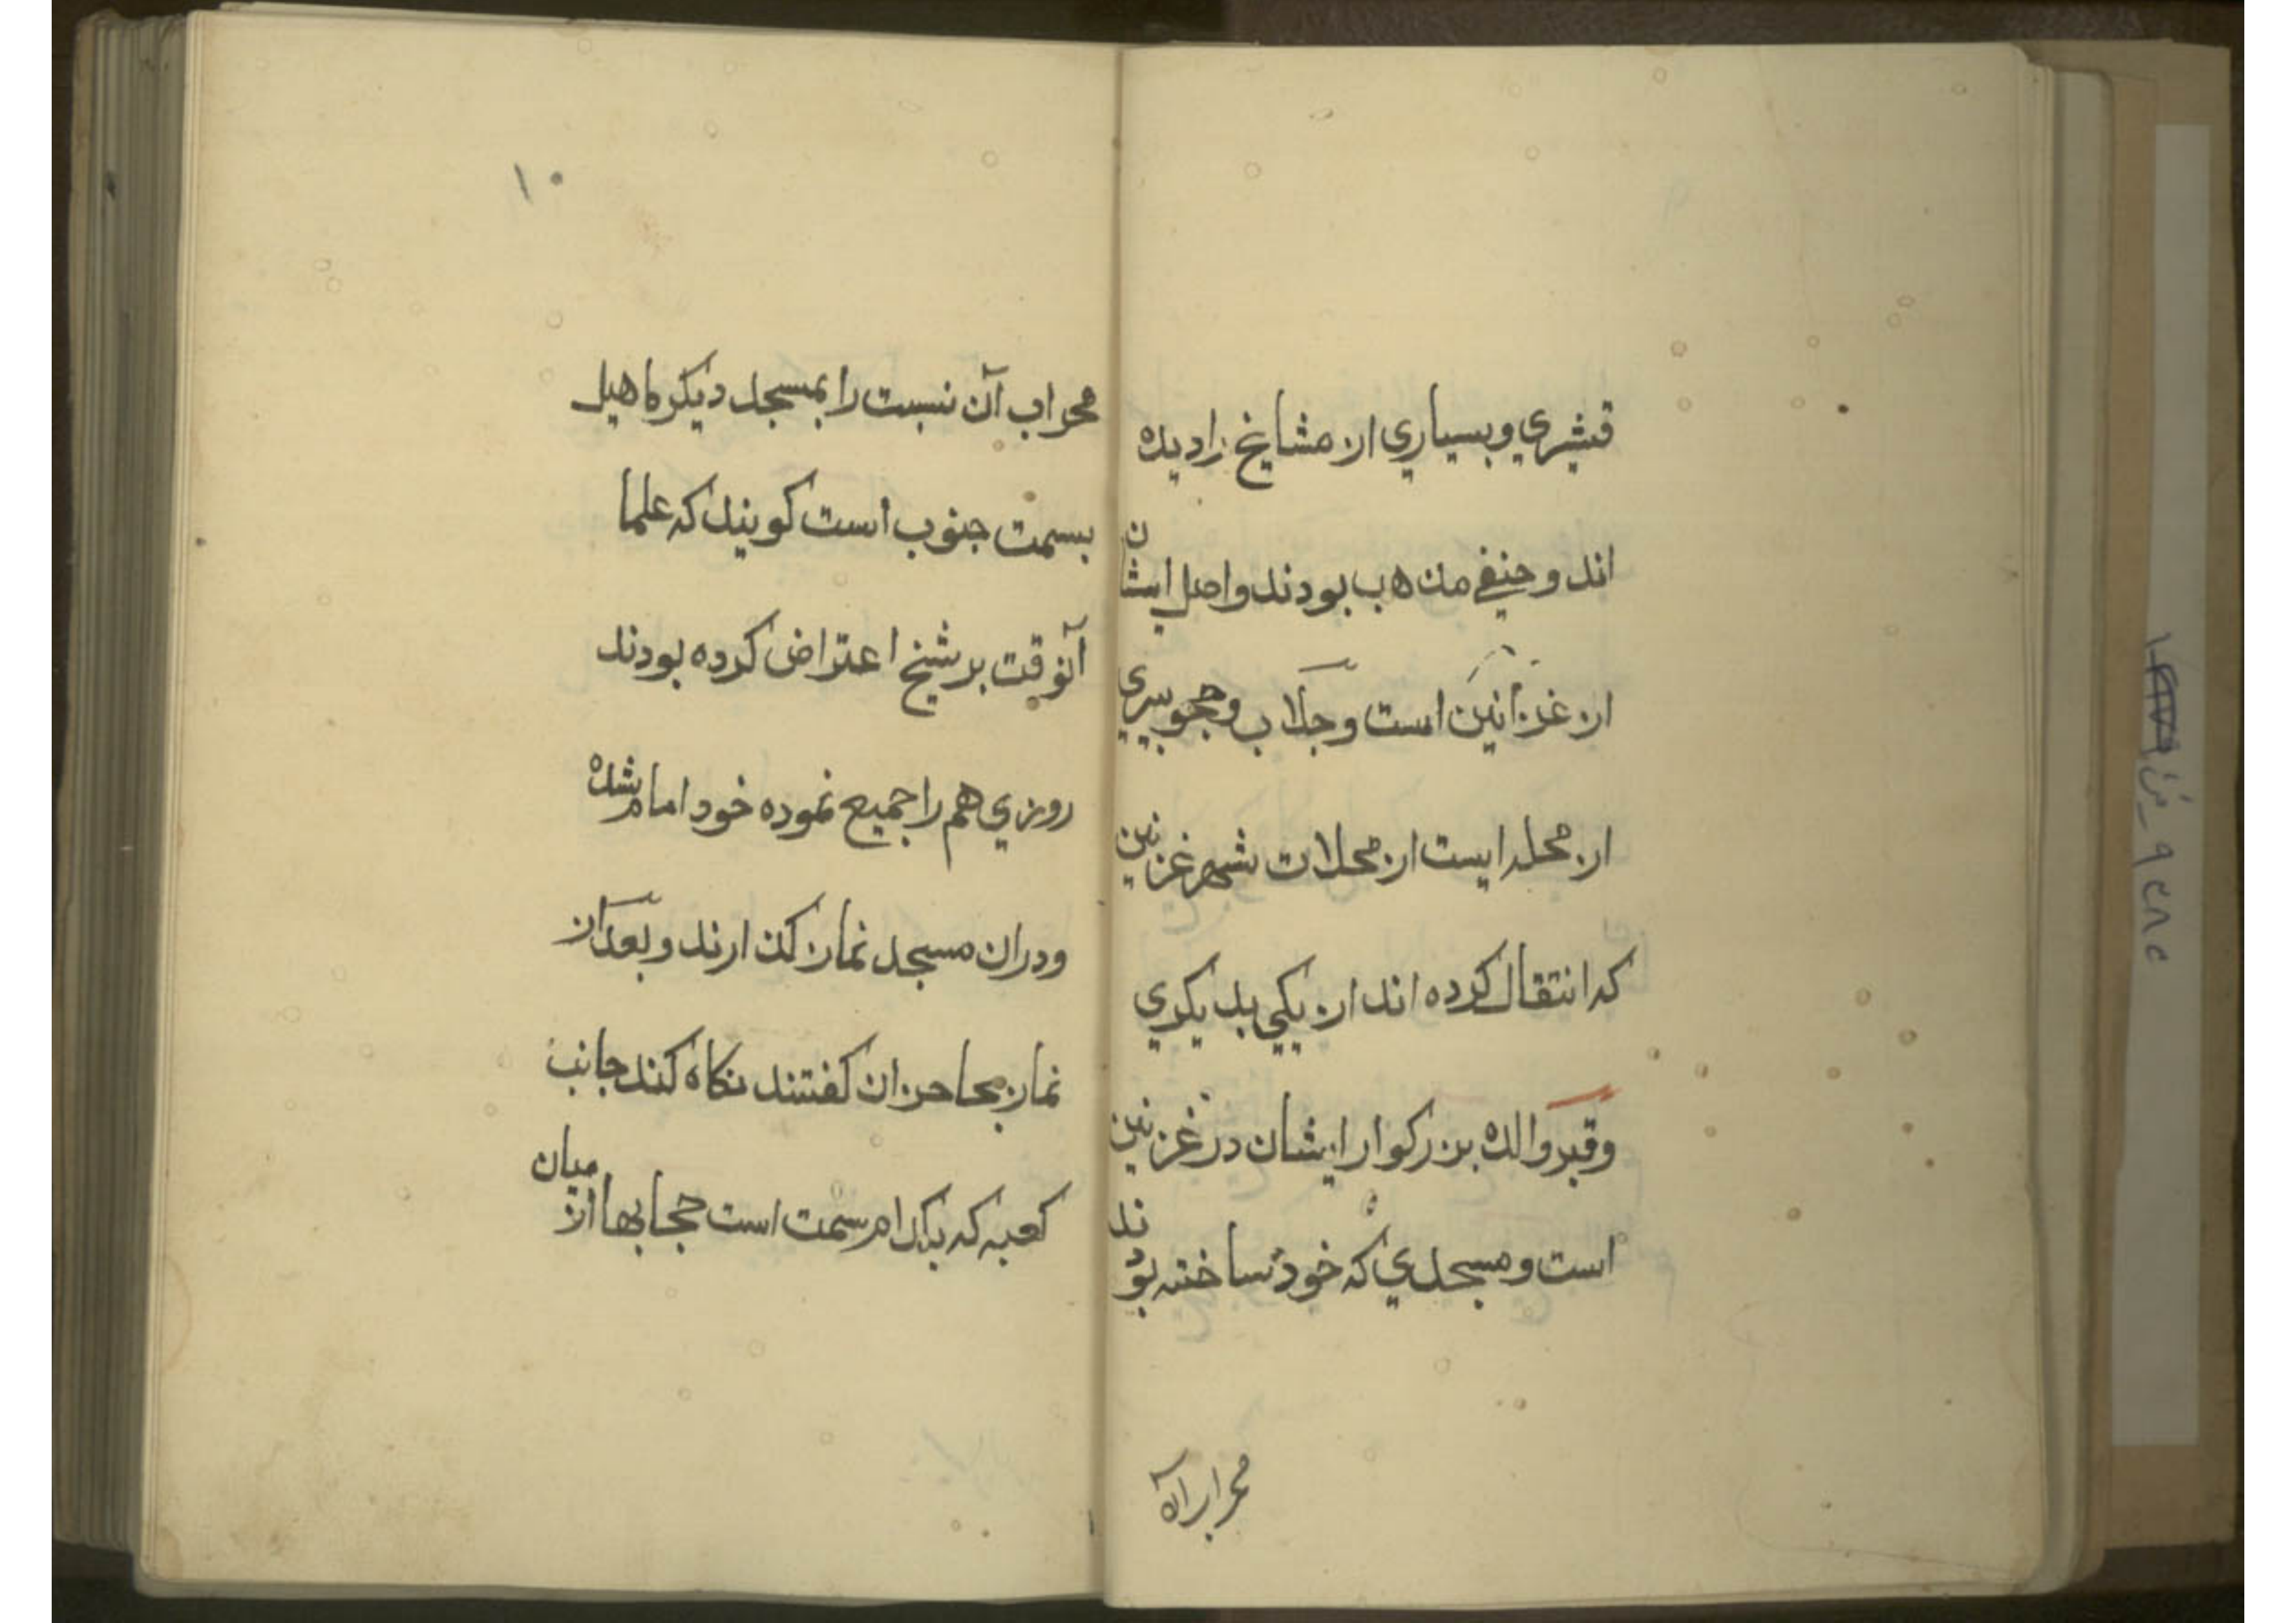 قشيري وبسياري از مشايخ را ديده
اند و حنيفي مذهب بودند و اصل ايشان
از غزنين است و جلاب و هجوير
از محله ايست از محلات شهر غزنين
كه انتقال كرده اند از يكي بديكري
وقبر والده بزركوار ايشان در غزنين
است و مسجدي كه خود ساخته بودند
محراب آن
۱۰
محراب آن نسبت را بمسجد ديكر ماهيل
بسمت جنوب است كويند كه علما
آنوقت بر شيخ اعتراض كرده بودند
روزي هم را جميع نموده خود امام شده
ودران مسجد نماز كذارند و بعد از
نماز بحاحزان كفتند نكاه كند جانب
كعبه كه بكدام سمت است حجابها از ميان